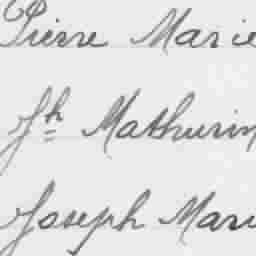 Pierre Marie
Jh Mathurin
Joseph Mari